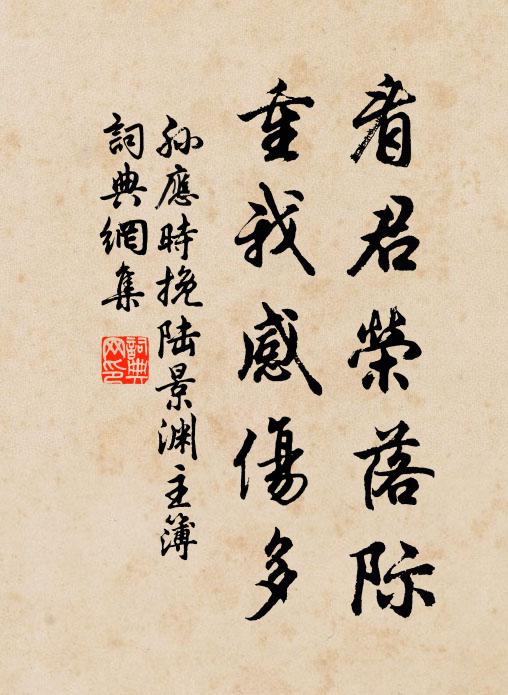 看君榮落际
重我感傷多
孫應時挽陆景渊主簿
詞典網集
詞典網印